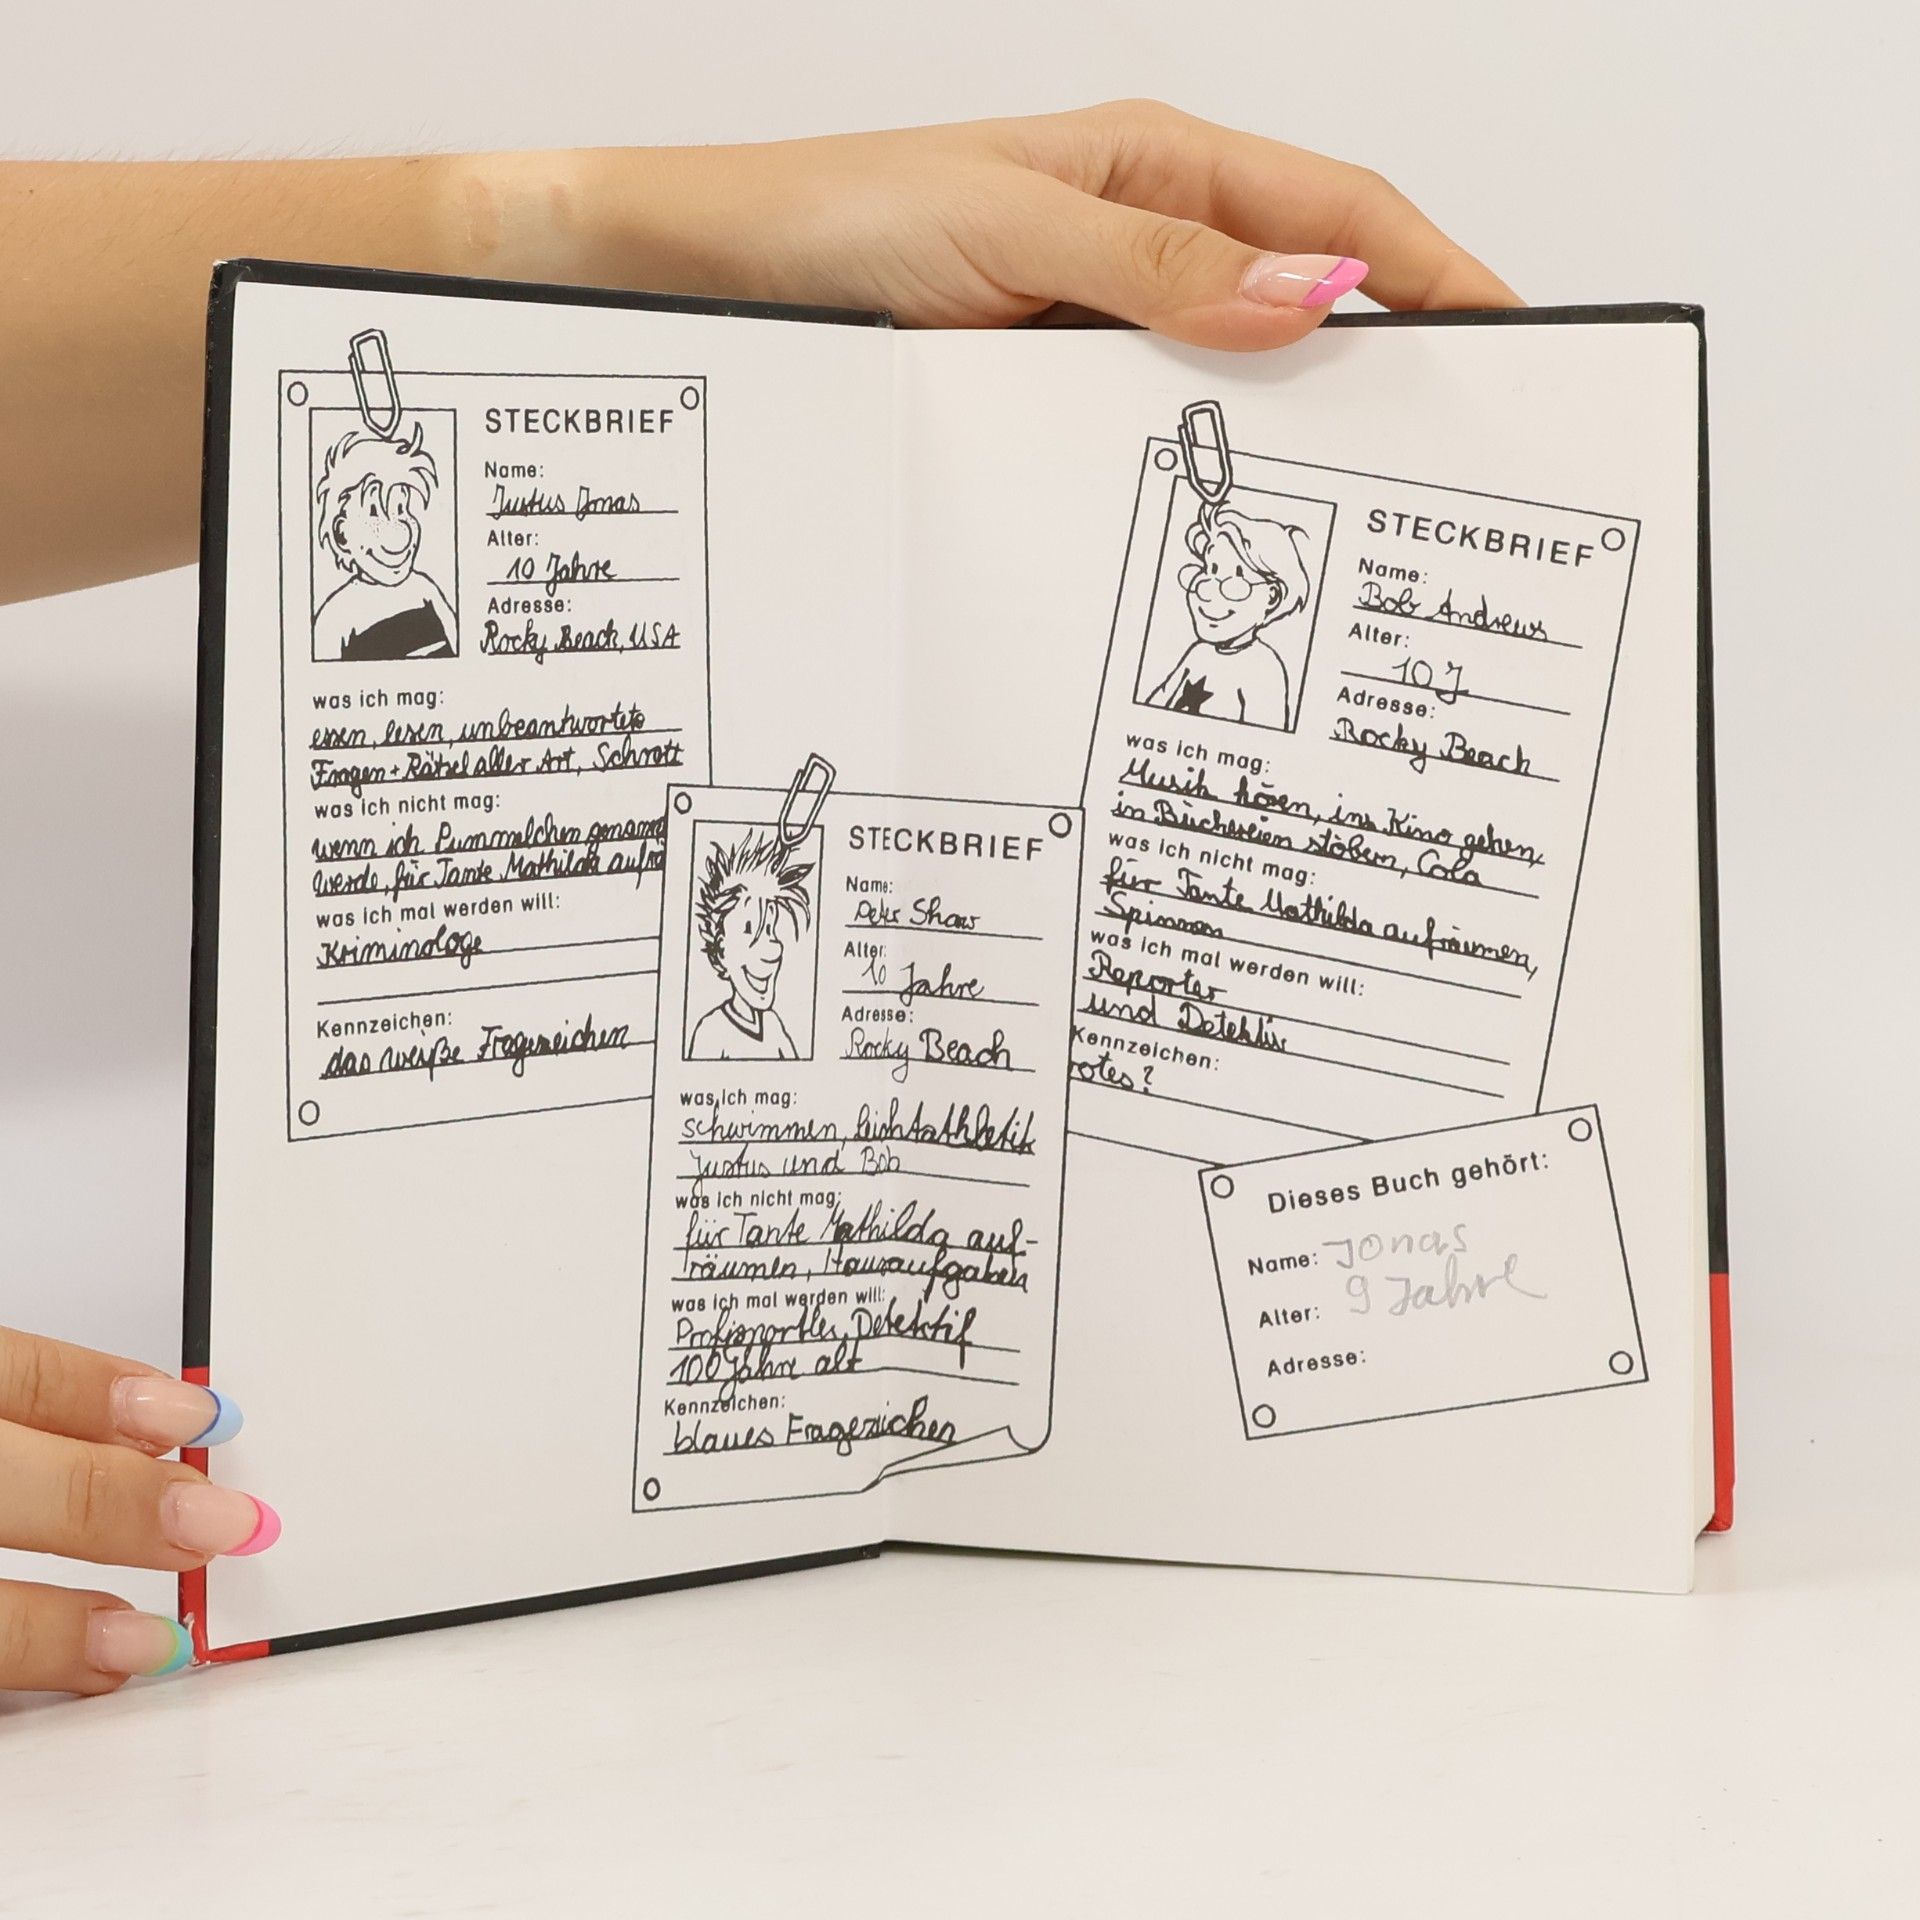 STECKBRIEF
Name:
Justus Jonas
Alter:
10 Jahre
Adresse:
Rocky Beach, USA
was ich mag:
essen, lesen, unbeantwortete
Fragen + Rätsel aller Art, Schrott
was ich nicht mag:
wenn ich Pummelchen genannt
werde, für Tante Mathilda aufrä
was ich mal werden will:
Kriminologe
Kennzeichen:
das weiße Fragezeichen
STECKBRIEF
Name:
Peter Shaw
Alter:
10 Jahre
Adresse:
Rocky Beach
was ich mag:
schwimmen, Leichtathletik
Justus und Bob
was ich nicht mag:
für Tante Mathilda auf-
räumen, Hausaufgaben
was ich mal werden will:
Profisportler, Detektif
100 Jahre alt
Kennzeichen:
blaues Fragezeichen
STECKBRIEF
Name:
Bob Andrews
Alter:
10 J
Adresse:
Rocky Beach
was ich mag:
Musik hören, ins Kino gehen,
in Büchereien stöbern, Cola
was ich nicht mag:
für Tante Mathilda aufräumen,
Spinnen
was ich mal werden will:
Reporter
und Detektiv
Kennzeichen:
rotes ?
Dieses Buch gehört:
Name: Jonas
Alter: 9 Jahre
Adresse: